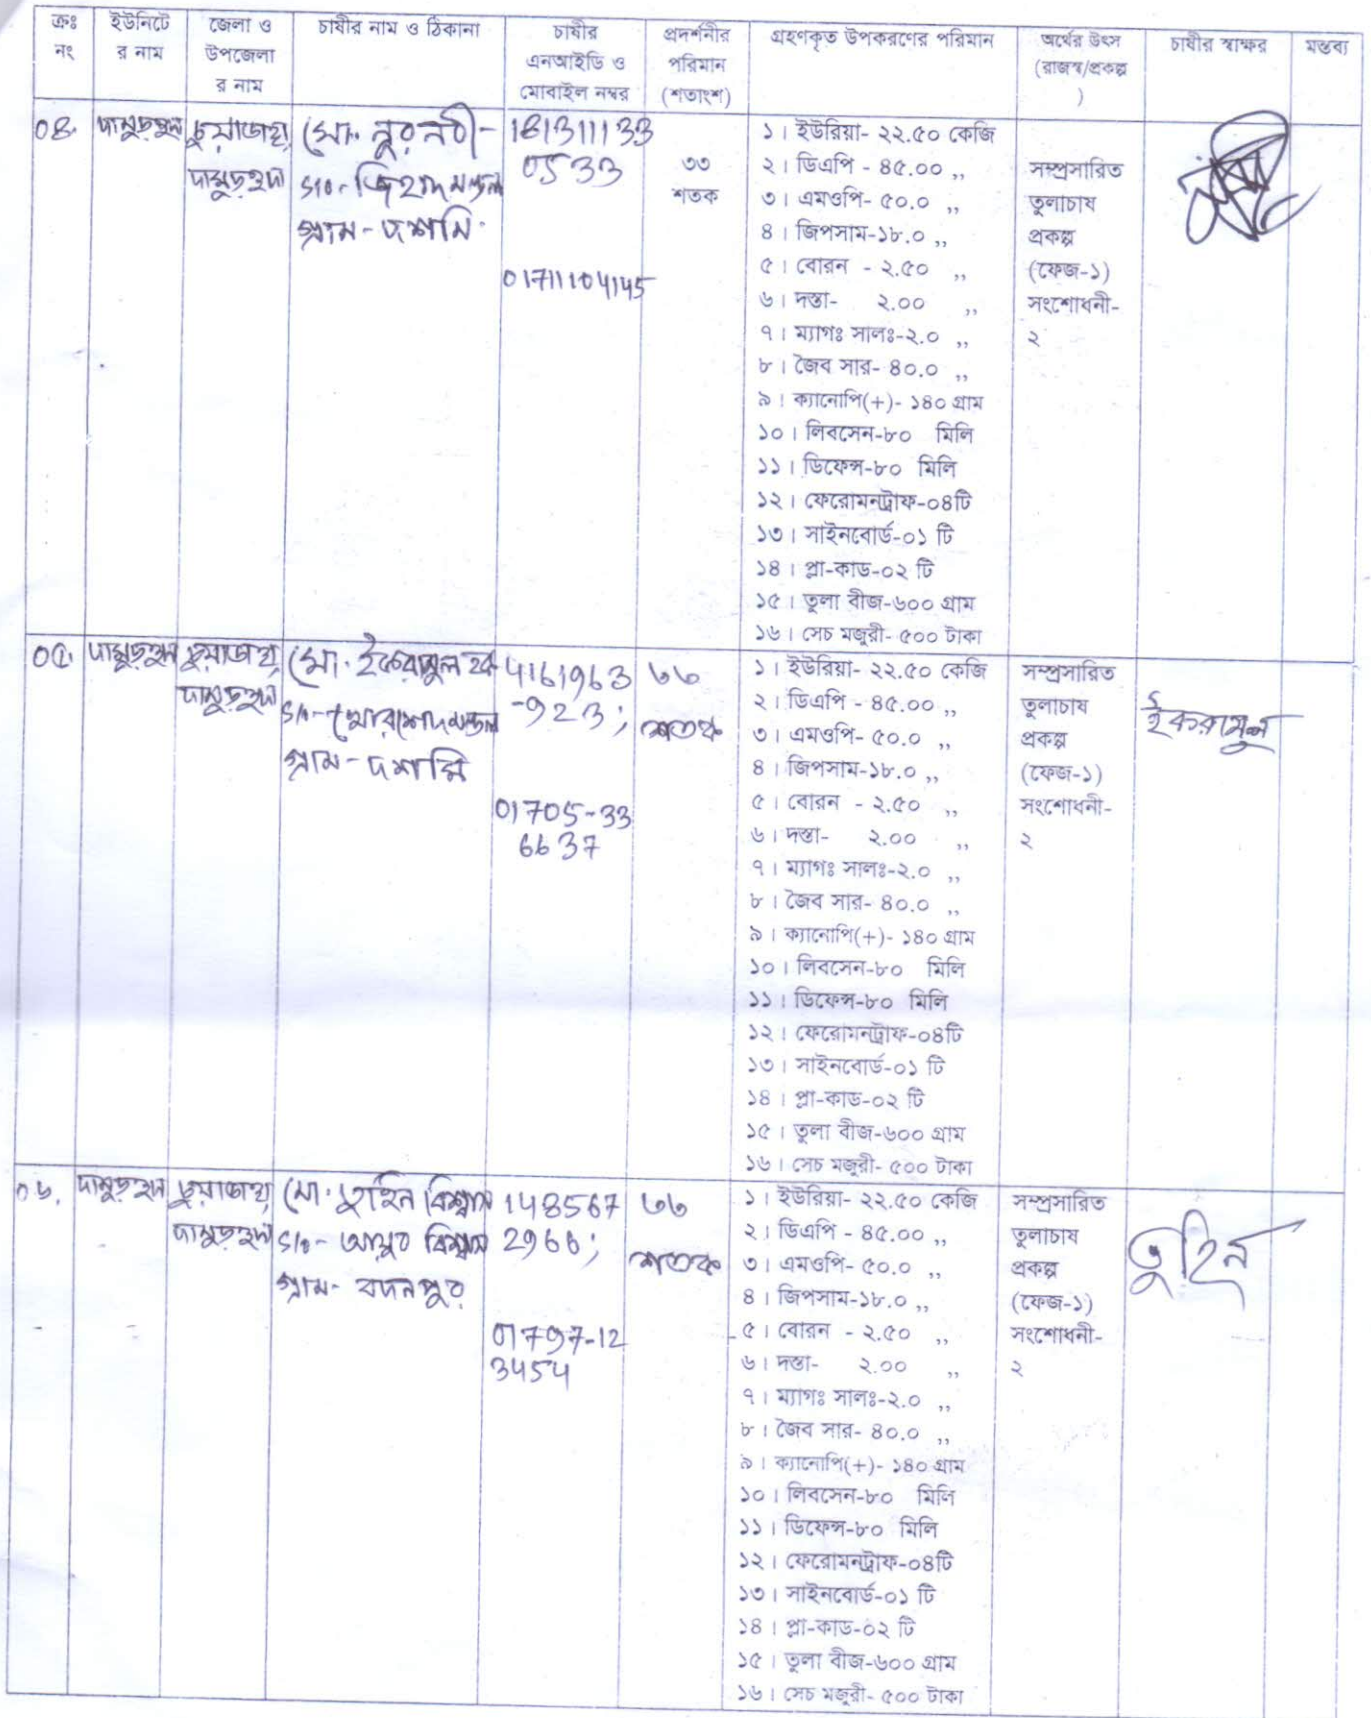 ক্রঃ নং
ইউনিটে
র নাম
জেলা ও
উপজেলা
র নাম
চাষীর নাম ও ঠিকানা
চাষীর
এনআইডি ও
মোবাইল নম্বর
প্রদর্শনীর
পরিমান
(শতাংশ)
গ্রহণকৃত উপকরণের পরিমান
অর্থের উৎস
(রাজস্ব/প্রকল্প
)
চাষীর স্বাক্ষর
মন্তব্য
০৪.
দামুড়হুদা
চুয়াডাঙ্গা,
দামুড়হুদা
মো. নুর নবী-
S/o-
গ্রাম-দশমি.
181311133
0533
01711104145
৩৩
শতক
১। ইউরিয়া- ২২.৫০ কেজি
২। ডিএপি - ৪৫.০০ ,,
৩। এমওপি- ৫০.০ ,,
৪। জিপসাম-১৮.০ ,,
৫। বোরন - ২.৫০ ,,
৬। দস্তা- ২.০০ ,,
৭। ম্যাগঃ সালঃ-২.০ ,,
৮। জৈব সার- ৪০.০ ,,
৯। ক্যানোপি(+)- ১৪০ গ্রাম
১০। লিবসেন-৮০ মিলি
১১। ডিফেন্স-৮০ মিলি
১২। ফেরোমনট্রাফ-০৪টি
১৩। সাইনবোর্ড-০১ টি
১৪। প্লা-কাড-০২ টি
১৫। তুলা বীজ-৬০০ গ্রাম
১৬। সেচ মজুরী- ৫০০ টাকা
সম্প্রসারিত
তুলাচাষ
প্রকল্প
(ফেজ-১)
সংশোধনী-
২
০৫.
দামুড়হুদা
চুয়াডাঙ্গা,
দামুড়হুদা
মো. ইকরামুল হক
S/o-
গ্রাম-দশমি
4161963
-923;
01705-33
6637
৬৬
শতক
১। ইউরিয়া- ২২.৫০ কেজি
২। ডিএপি - ৪৫.০০ ,,
৩। এমওপি- ৫০.০ ,,
৪। জিপসাম-১৮.০ ,,
৫। বোরন - ২.৫০ ,,
৬। দস্তা- ২.০০ ,,
৭। ম্যাগঃ সালঃ-২.০ ,,
৮। জৈব সার- ৪০.০ ,,
৯। ক্যানোপি(+)- ১৪০ গ্রাম
১০। লিবসেন-৮০ মিলি
১১। ডিফেন্স-৮০ মিলি
১২। ফেরোমনট্রাফ-০৪টি
১৩। সাইনবোর্ড-০১ টি
১৪। প্লা-কাড-০২ টি
১৫। তুলা বীজ-৬০০ গ্রাম
১৬। সেচ মজুরী- ৫০০ টাকা
সম্প্রসারিত
তুলাচাষ
প্রকল্প
(ফেজ-১)
সংশোধনী-
২
ইকরামুল
০৬.
দামুড়হুদা
চুয়াডাঙ্গা,
দামুড়হুদা
মো. তুহিন বিশ্বাস
S/o- বিশ্বাস
গ্রাম- বদনপুর
148567
2966;
01797-12
3454
৬৬
শতক
১। ইউরিয়া- ২২.৫০ কেজি
২। ডিএপি - ৪৫.০০ ,,
৩। এমওপি- ৫০.০ ,,
৪। জিপসাম-১৮.০ ,,
৫। বোরন - ২.৫০ ,,
৬। দস্তা- ২.০০ ,,
৭। ম্যাগঃ সালঃ-২.০ ,,
৮। জৈব সার- ৪০.০ ,,
৯। ক্যানোপি(+)- ১৪০ গ্রাম
১০। লিবসেন-৮০ মিলি
১১। ডিফেন্স-৮০ মিলি
১২। ফেরোমনট্রাফ-০৪টি
১৩। সাইনবোর্ড-০১ টি
১৪। প্লা-কাড-০২ টি
১৫। তুলা বীজ-৬০০ গ্রাম
১৬। সেচ মজুরী- ৫০০ টাকা
সম্প্রসারিত
তুলাচাষ
প্রকল্প
(ফেজ-১)
সংশোধনী-
২
তুহিন